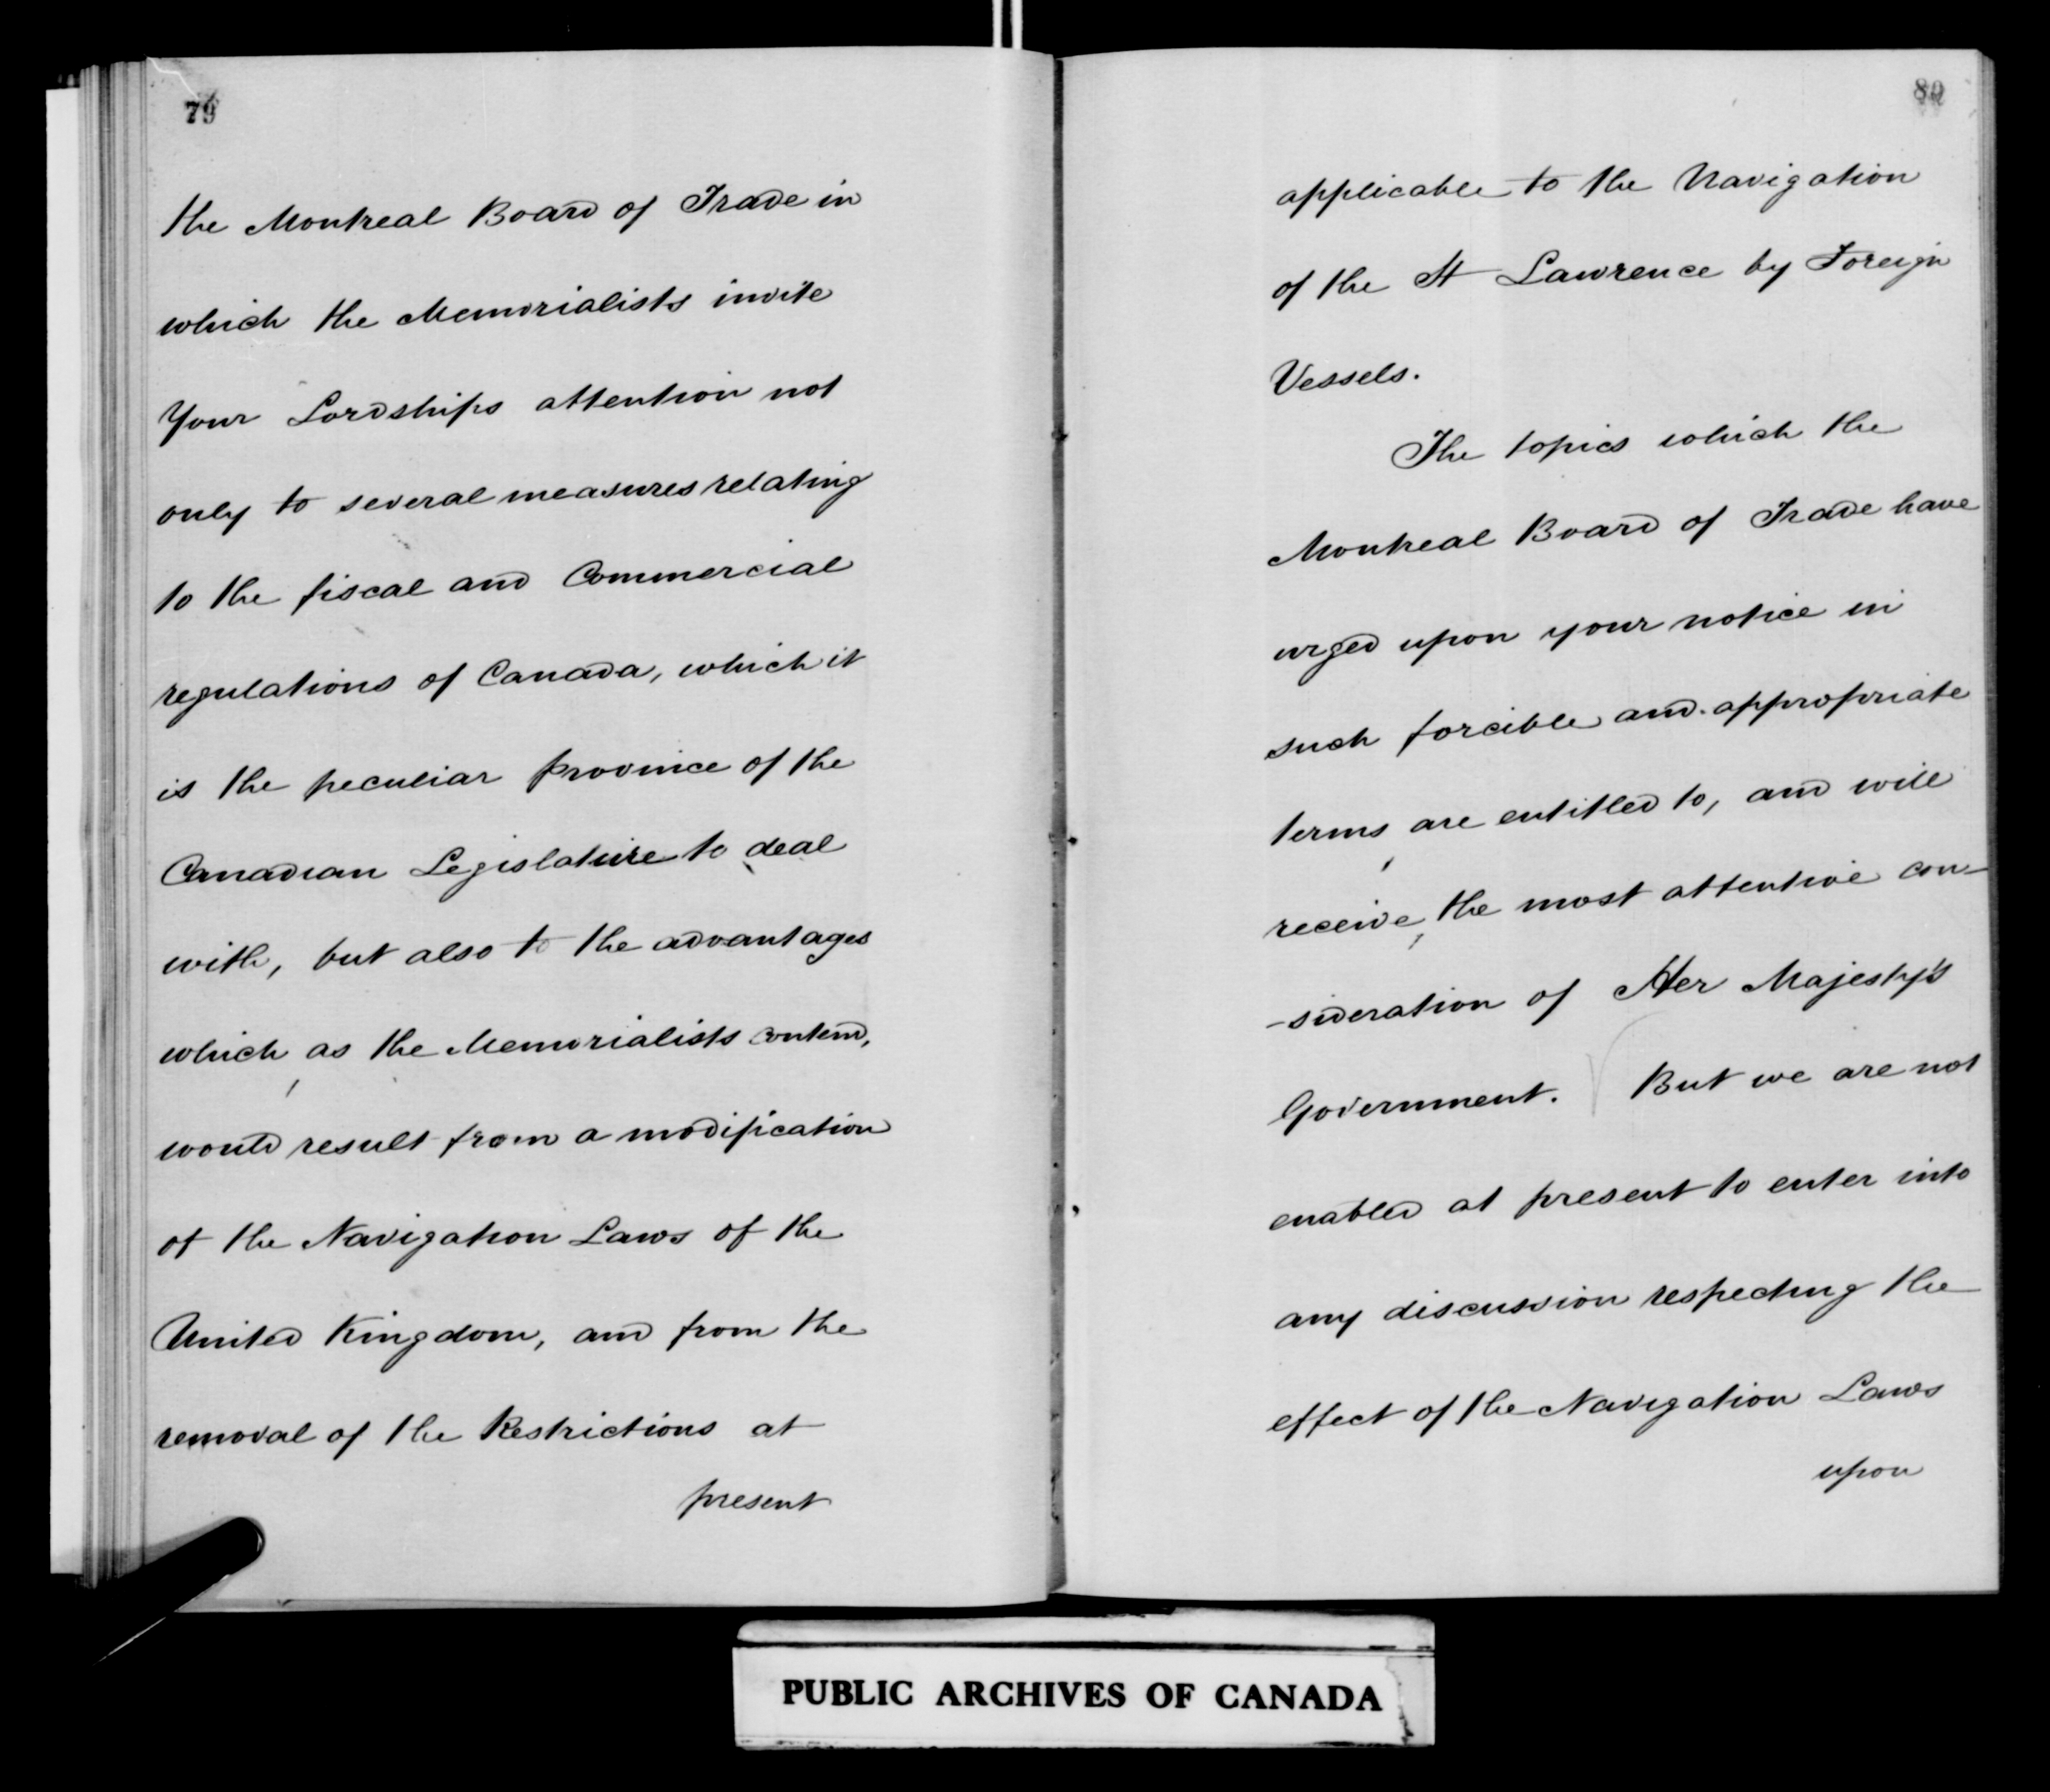 79
the Montreal Board of Trade in
which the Memorialists invite
Your Lordships attention not
only to several measures relating
to the fiscal and Commercial
regulations of Canada, which it
is the peculiar province of the
Canadian Legislature to deal
with, but also to the advantages
which, as the Memorialists contend,
would result from a modification
of the Navigation Laws of the
United Kingdom, and from the
removal of the Restrictions at
present
80
applicable to the Navigation
of the St Lawrence by Foreign
Vessels.
The topics which the
Montreal Board of Trade have
urged upon your notice in
such forcible and appropriate
terms, are entitled to, and will
receive, the most attentive con-
-sideration of Her Majesty's
Government. But we are not
enabled at present to enter into
any discussion respecting the
effect of the Navigation Laws
upon
PUBLIC ARCHIVES OF CANADA